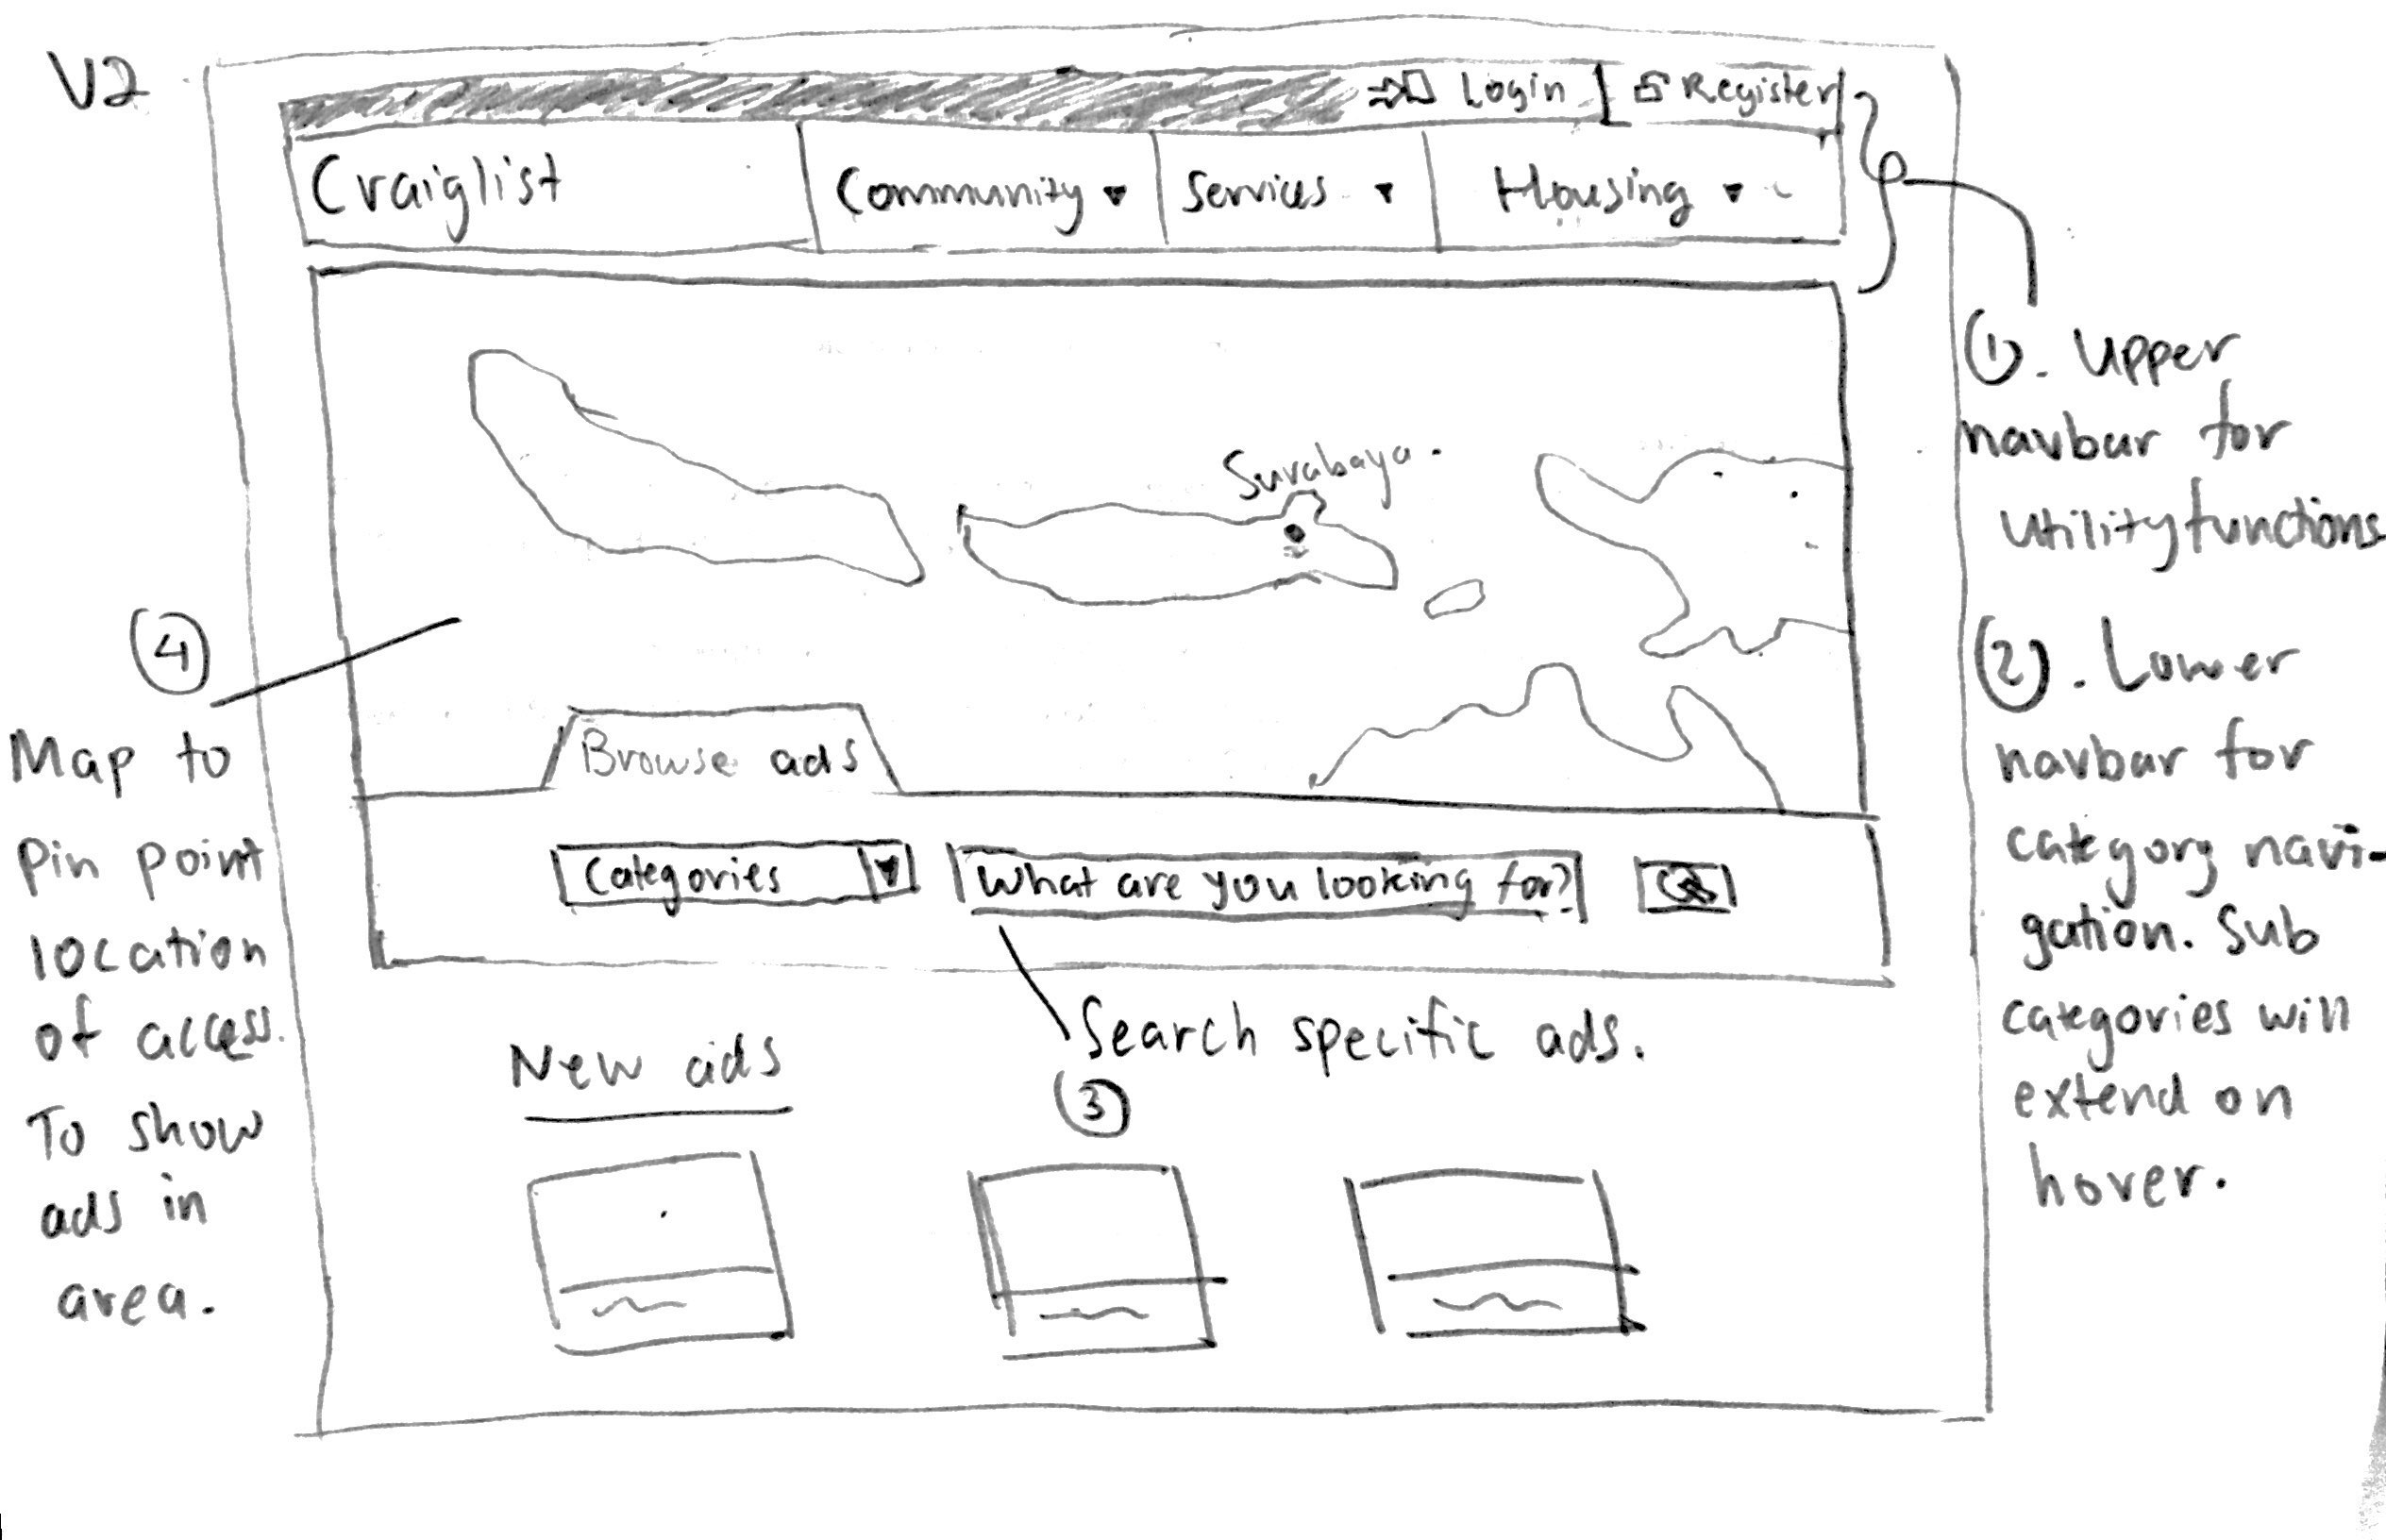 V2
Login
Register
Craiglist
Community
Services
Housing
Surabaya.
Browse ads
Categories
What are you looking for?
New ads
①. Upper
navbar for
utility functions
②. Lower
navbar for
category navi-
gation. Sub
categories will
extend on
hover.
Search specific ads.
③
④
Map to
pin point
location
of access.
To show
ads in
area.